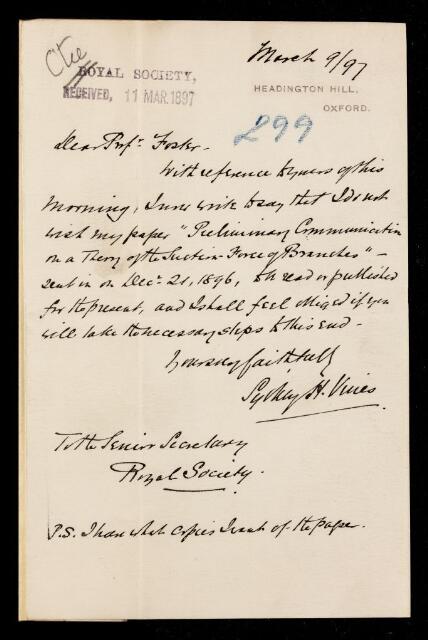 Ctee
ROYAL SOCIETY,
RECEIVED, 11 MAR. 1897
March 9/97
HEADINGTON HILL,
OXFORD.
299
Dear Prfr. Foster -
With reference to yours of this
morning, I now write to say that I do not
wish my paper "Preliminary Communication
on a Theory of the Suction-Force of Branches" -
sent in on Decr. 21, 1896, to be read or published
for the present, and I shall feel obliged if you
will take the necessary steps to this end -
Yours very faithfully
Sydney H. Vines
To the Senior Secretary
Royal Society.
P.S. I have what copies I want of the paper.